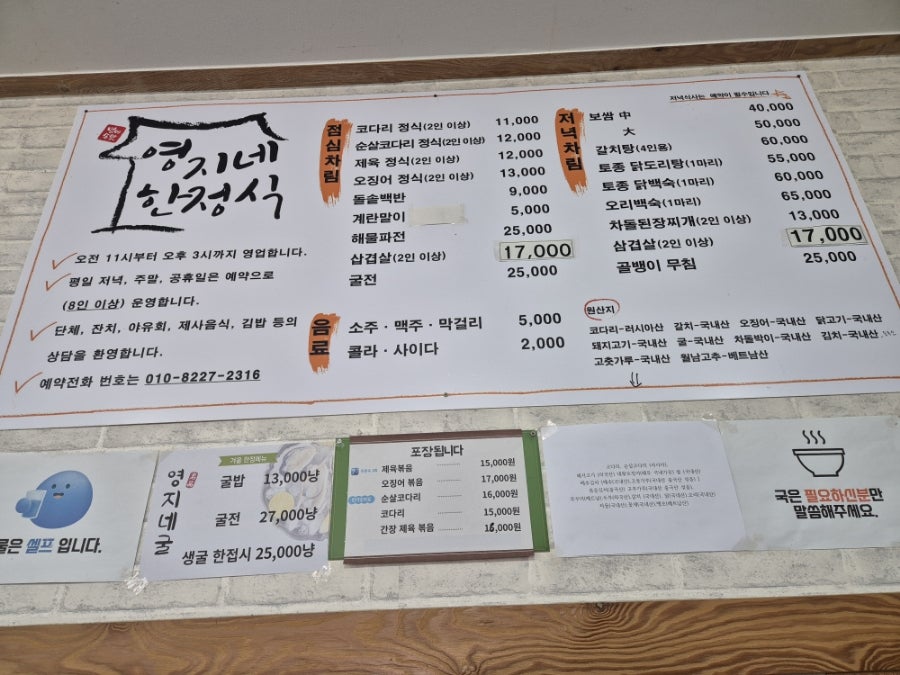 영지네
한정식
오전 11시부터 오후 3시까지 영업합니다.
평일 저녁, 주말, 공휴일은 예약으로
(8인 이상) 운영합니다.
단체, 잔치, 야유회, 제사음식, 김밥 등의
상담을 환영합니다.
예약전화 번호는 010-8227-2316
점심차림
코다리 정식(2인 이상) 11,000
순살코다리 정식(2인 이상) 12,000
제육 정식(2인 이상) 12,000
오징어 정식(2인 이상) 13,000
돌솥백반 9,000
계란말이 5,000
해물파전 25,000
삼겹살(2인 이상) 17,000
굴전 25,000
음료
소주·맥주·막걸리 5,000
콜라·사이다 2,000
저녁식사는 예약이 필수입니다
저녁차림
보쌈 中 40,000
大 50,000
갈치탕(4인용) 60,000
토종 닭도리탕(1마리) 55,000
토종 닭백숙(1마리) 60,000
오리백숙(1마리) 65,000
차돌된장찌개(2인 이상) 13,000
삼겹살(2인 이상) 17,000
골뱅이 무침 25,000
원산지
코다리-러시아산 갈치-국내산 오징어-국내산 닭고기-국내산
돼지고기-국내산 굴-국내산 차돌박이-국내산 김치-국내산
고춧가루-국내산 월남고추-베트남산
물은 셀프 입니다.
겨울 한정메뉴
영지네굴
굴밥 13,000냥
굴전 27,000냥
생굴 한접시 25,000냥
포장됩니다
제육볶음 15,000원
오징어 볶음 17,000원
순살코다리 16,000원
코다리 15,000원
간장 제육 볶음 16,000원
국은 필요하신분만
말씀해주세요.